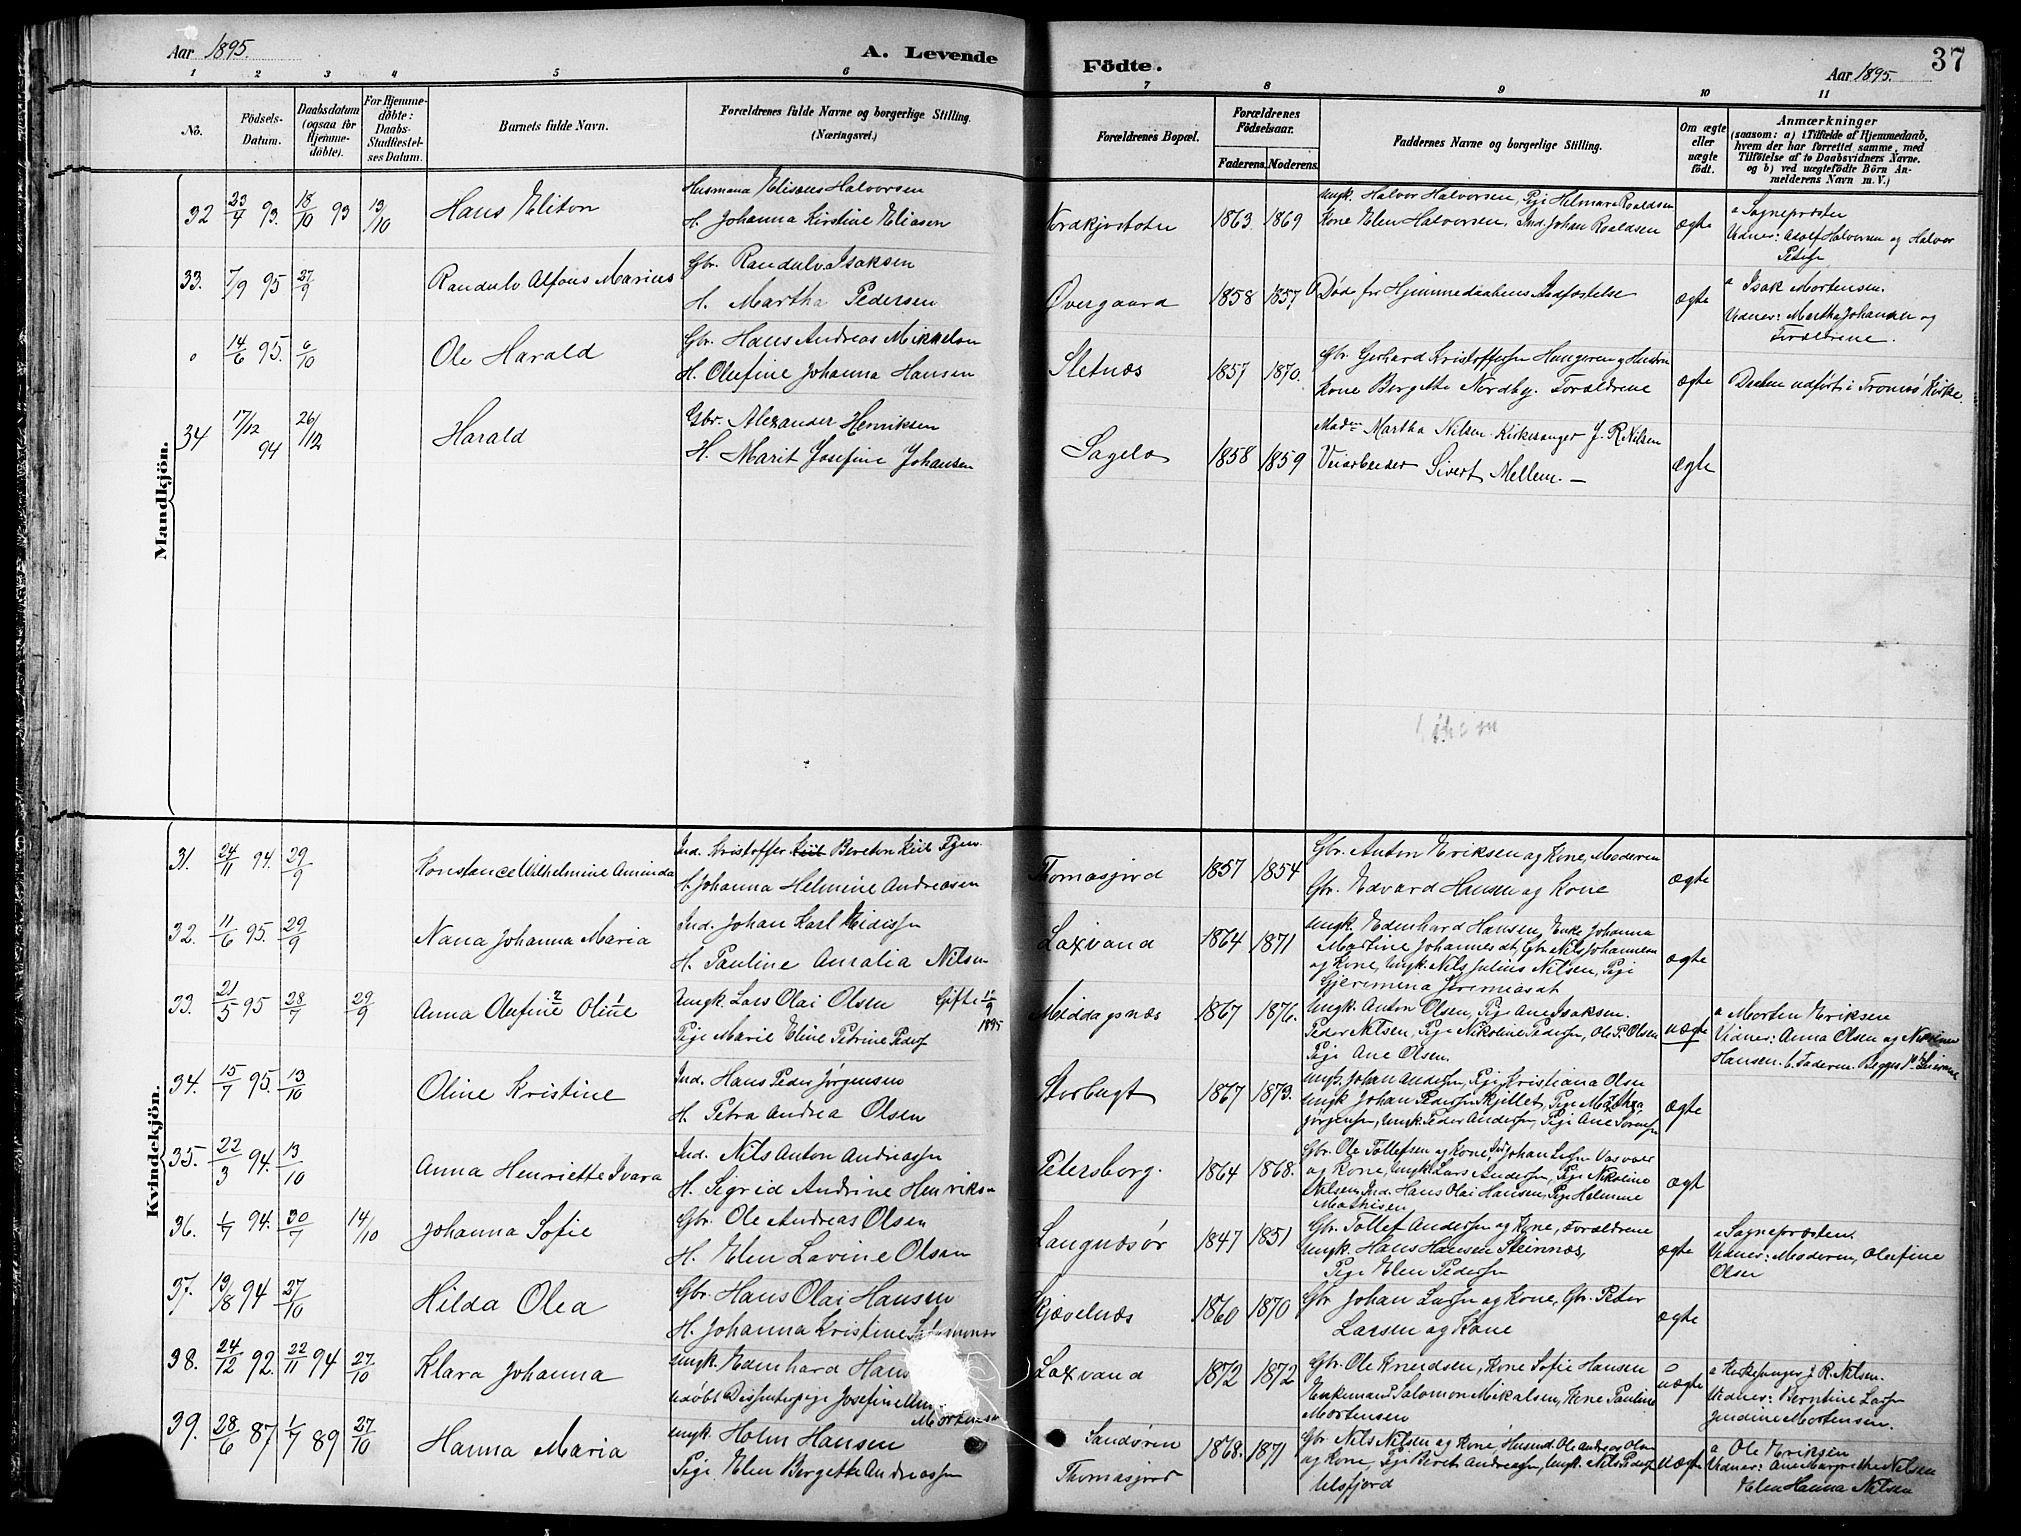 Aar 1895.
A. Levende Födte.
Aar 1895.
37
1 2 3 4 5 6 7 8 9 10 11
No.
Födsels-Datum.
Daabsdatum (ogsaa for Hjemme-döbte).
For Hjemme-döbte: Daabs-Stadfæstel-ses Datum.
Barnets fulde Navn.
Forældrenes fulde Navne og borgerlige Stilling. (Næringsvei.)
Forældrenes Bopæl.
Forældrenes Födselsaar.
Faderens. Moderens.
Faddernes Navne og borgerlige Stilling.
Om ægte eller uægte födt.
Anmærkninger
(saasom: a) i Tilfælde af Hjemmedaab,
hvem der har forrettet samme, med
Tilföielse af to Daabsvidners Navne.
og b) ved uægtefödte Börn An-
melderens Navn m. V.)
Mandkjön.
32 23/4 93. 18/10 93 13/10 Hans Eliton
Husmand Eliseus Halvorsen
H. Johanna Kirstine Eliasen
Nordkjosbotn 1863 1869
Ungk. Halvor Halvorsen, Pige Helmara Roaldsen
Kone Elen Halvorsen, Ind. Johan Roaldsen
ægte
a Sognepræsten
Vidner: Adolf Halvorsen og Halvor
33. 7/9 95 27/9 Randulv Alfons Marius
Gbr. Randulv Isaksen
H. Martha Pedersen
Øvergaard 1858 1857
Døde før Hjemmedaabens Stadfæstelse
ægte
a Isak Mortensen.
Vidner: Martha Johansen og
Forældrene.
0 14/6 95. 6/10 Ole Harald
Gbr. Hans Andreas Mikkelsen
H. Olufine Johanna Hansen
Sletnæs 1857 1870.
Gbr Gerhard Kristoffersen Hungeren og Hustru
Kone Bergette Nordby. Forældrene
ægte
Daaben udført i Tromsø Kirke.
34 17/12 94 26/12 Harald
Gbr. Alexander Henriksen
H. Marit Josefine Johansen
Sagelv 1858 1859
Madm Martha Nilsen. Kirkesanger J. R. Nilsen
Veiarbeider Sivert Mellem. —
ægte
Kvindekjön.
31. 24/11 94. 29/9 Konstance Wilhelmine Aminda
Ind. Kristoffer Bereton Keil
H. Johanna Helmine Andreasen
Thomasjord 1857 1854
Gbr. Anton Eriksen og Kone, Moderen
Gbr. Edvard Hansen og Kone
ægte
32. 11/6 95. 29/9 Nana Johanna Maria
Ind. Johan Karl
H. Pauline Amalia Nilsen
Laxvand 1864 1871
Ungk. Edenhard Hansen, Enke Johanna
Martine Johannesdt, Gbr Nils Johannesen
og Kone, Ungk. Nils Julius Nilsen, Pige
Gjeremina Jeremiasdt
ægte
33. 21/5 95 28/7 29/9 Anna Olufine Oline
Ungk. Lars Olai Olsen Gifte 12/9 1895
Pige Marie Eline Petrine Peders
Middagsnæs 1867 1876.
Ungk. Anton Olsen, Pige Ane Isaksen.
Peder Nilsen, Pige Nikoline Pedersen, Ole P. Olsen
Pige Ane Olsen.
uægte
a Morten Eriksen
Vidner: Anna Olsen og Nikoline
Hansen. b. Faderen. Begges 1ste Leiermaal
34. 15/7 95. 13/10 Oline Kristine
Ind. Hans Peder Jørgensen
H. Petra Andrea Olsen
Storbugt 1867 1873.
Ungk. Johan Andersen, Pige Kristiana Olsen
Ungk Johan Pedersen Skjellet, Pige Mathea
Jørgensen, Ungk. Peder Andersen, Pige Ane Sørensen
ægte
35. 22/3 94. 13/10 Anna Henriette Ivara
Ind. Nils Anton Andreassen
H. Sigrid Andrine Henriksen
Petersborg. 1864 1868.
Gbr. Ole Tollefsen og Kone, Ind Johan Larsen Vasvær
og Kone, Ungk Lars Andersen, Pige Nikoline
Nilsen, Ind. Hans Olai Hansen, Pige Helmine
Mathisen
ægt
36. 1/7 94. 30/7 14/10 Johanna Sofie
Gbr. Ole Andreas Olsen
H. Elen Lavine Olsen
Langnæsør 1847 1851
Gbr. Tollef Andersen og Kone, Forældrene
Ungk. Hans Hansen Steinnæs,
Pige Elen Pedersen
ægte
a Sognepræsten.
Vidner: Moderen, Olufine
Olsen
37. 13/8 94 27/10 Hilda Olea
Gbr. Hans Olai Hansen
H. Johanna Kristine Salamonsen
Skjævelnæs 1860 1870
Gbr Johan Larsen og Kone, Gbr. Peter
Larsen og Kone
ægte
38. 24/12 92. 22/11 94 27/10 Klara Johanna
Ungk. Edenhard Hans
udøbt Dissenterpige Josefine
Mortensen
Laxvand 1872 1872
Gbr. Ole Knudsen, Kone Sofie Hansen
Enkemand Salomon Mikalsen, Kone Pauline
Mortensen
uægte
a Kirkesanger J. R. Nilsen.
Vidner: Berntine Larsen
Jendine Mortensen.
39. 28/6 87 1/7 89 27/10 Hanna Maria
Ungk. Holm Hansen
Pige Elen Bergette Andreassen
Sandøren
Thomasjord
1868. 1871
Gbr Nils Nilsen og Kone, Husmd. Ole Andreas Olsen
og Kone, Pige Beret Andreassen, Ungk. Nils Pedersen
Ulsfjord
uægte
a Ole Eriksen
Vidner: Ane Margrethe Nilsen
Helen Hanna Nilsen